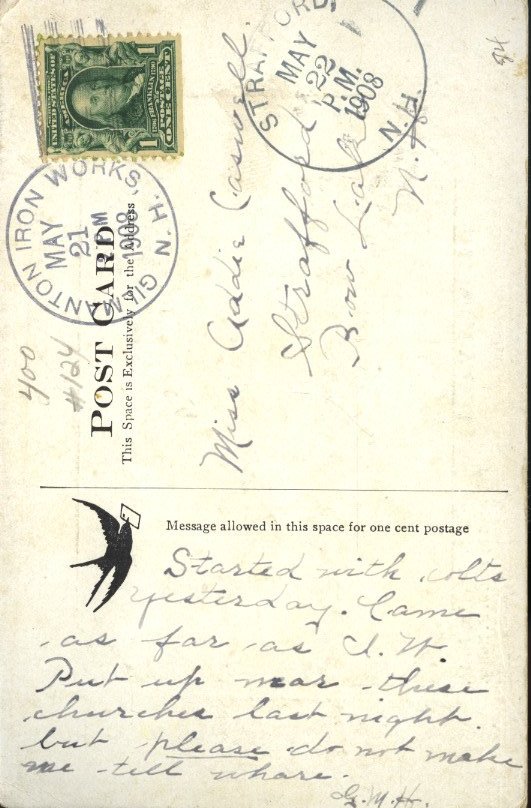 UNITED STATES OF AMERICA
1 POSTAGE 1
ONE CENT
GILMANTON IRON WORKS, N.H.
MAY
21
PM
1908
STRAFFORD
MAY
22
P.M.
1908
N.H.
84
400
#124
POST CARD
This Space is Exclusively for the Address
Miss Addie Caswell.
Strafford
Bow Lake
N.H.
Message allowed in this space for one cent postage
Started with colts
yesterday. Came
as far as I. W.
Put up near these
churches last night.
but please do not make
me tell whare.
G.M.H.